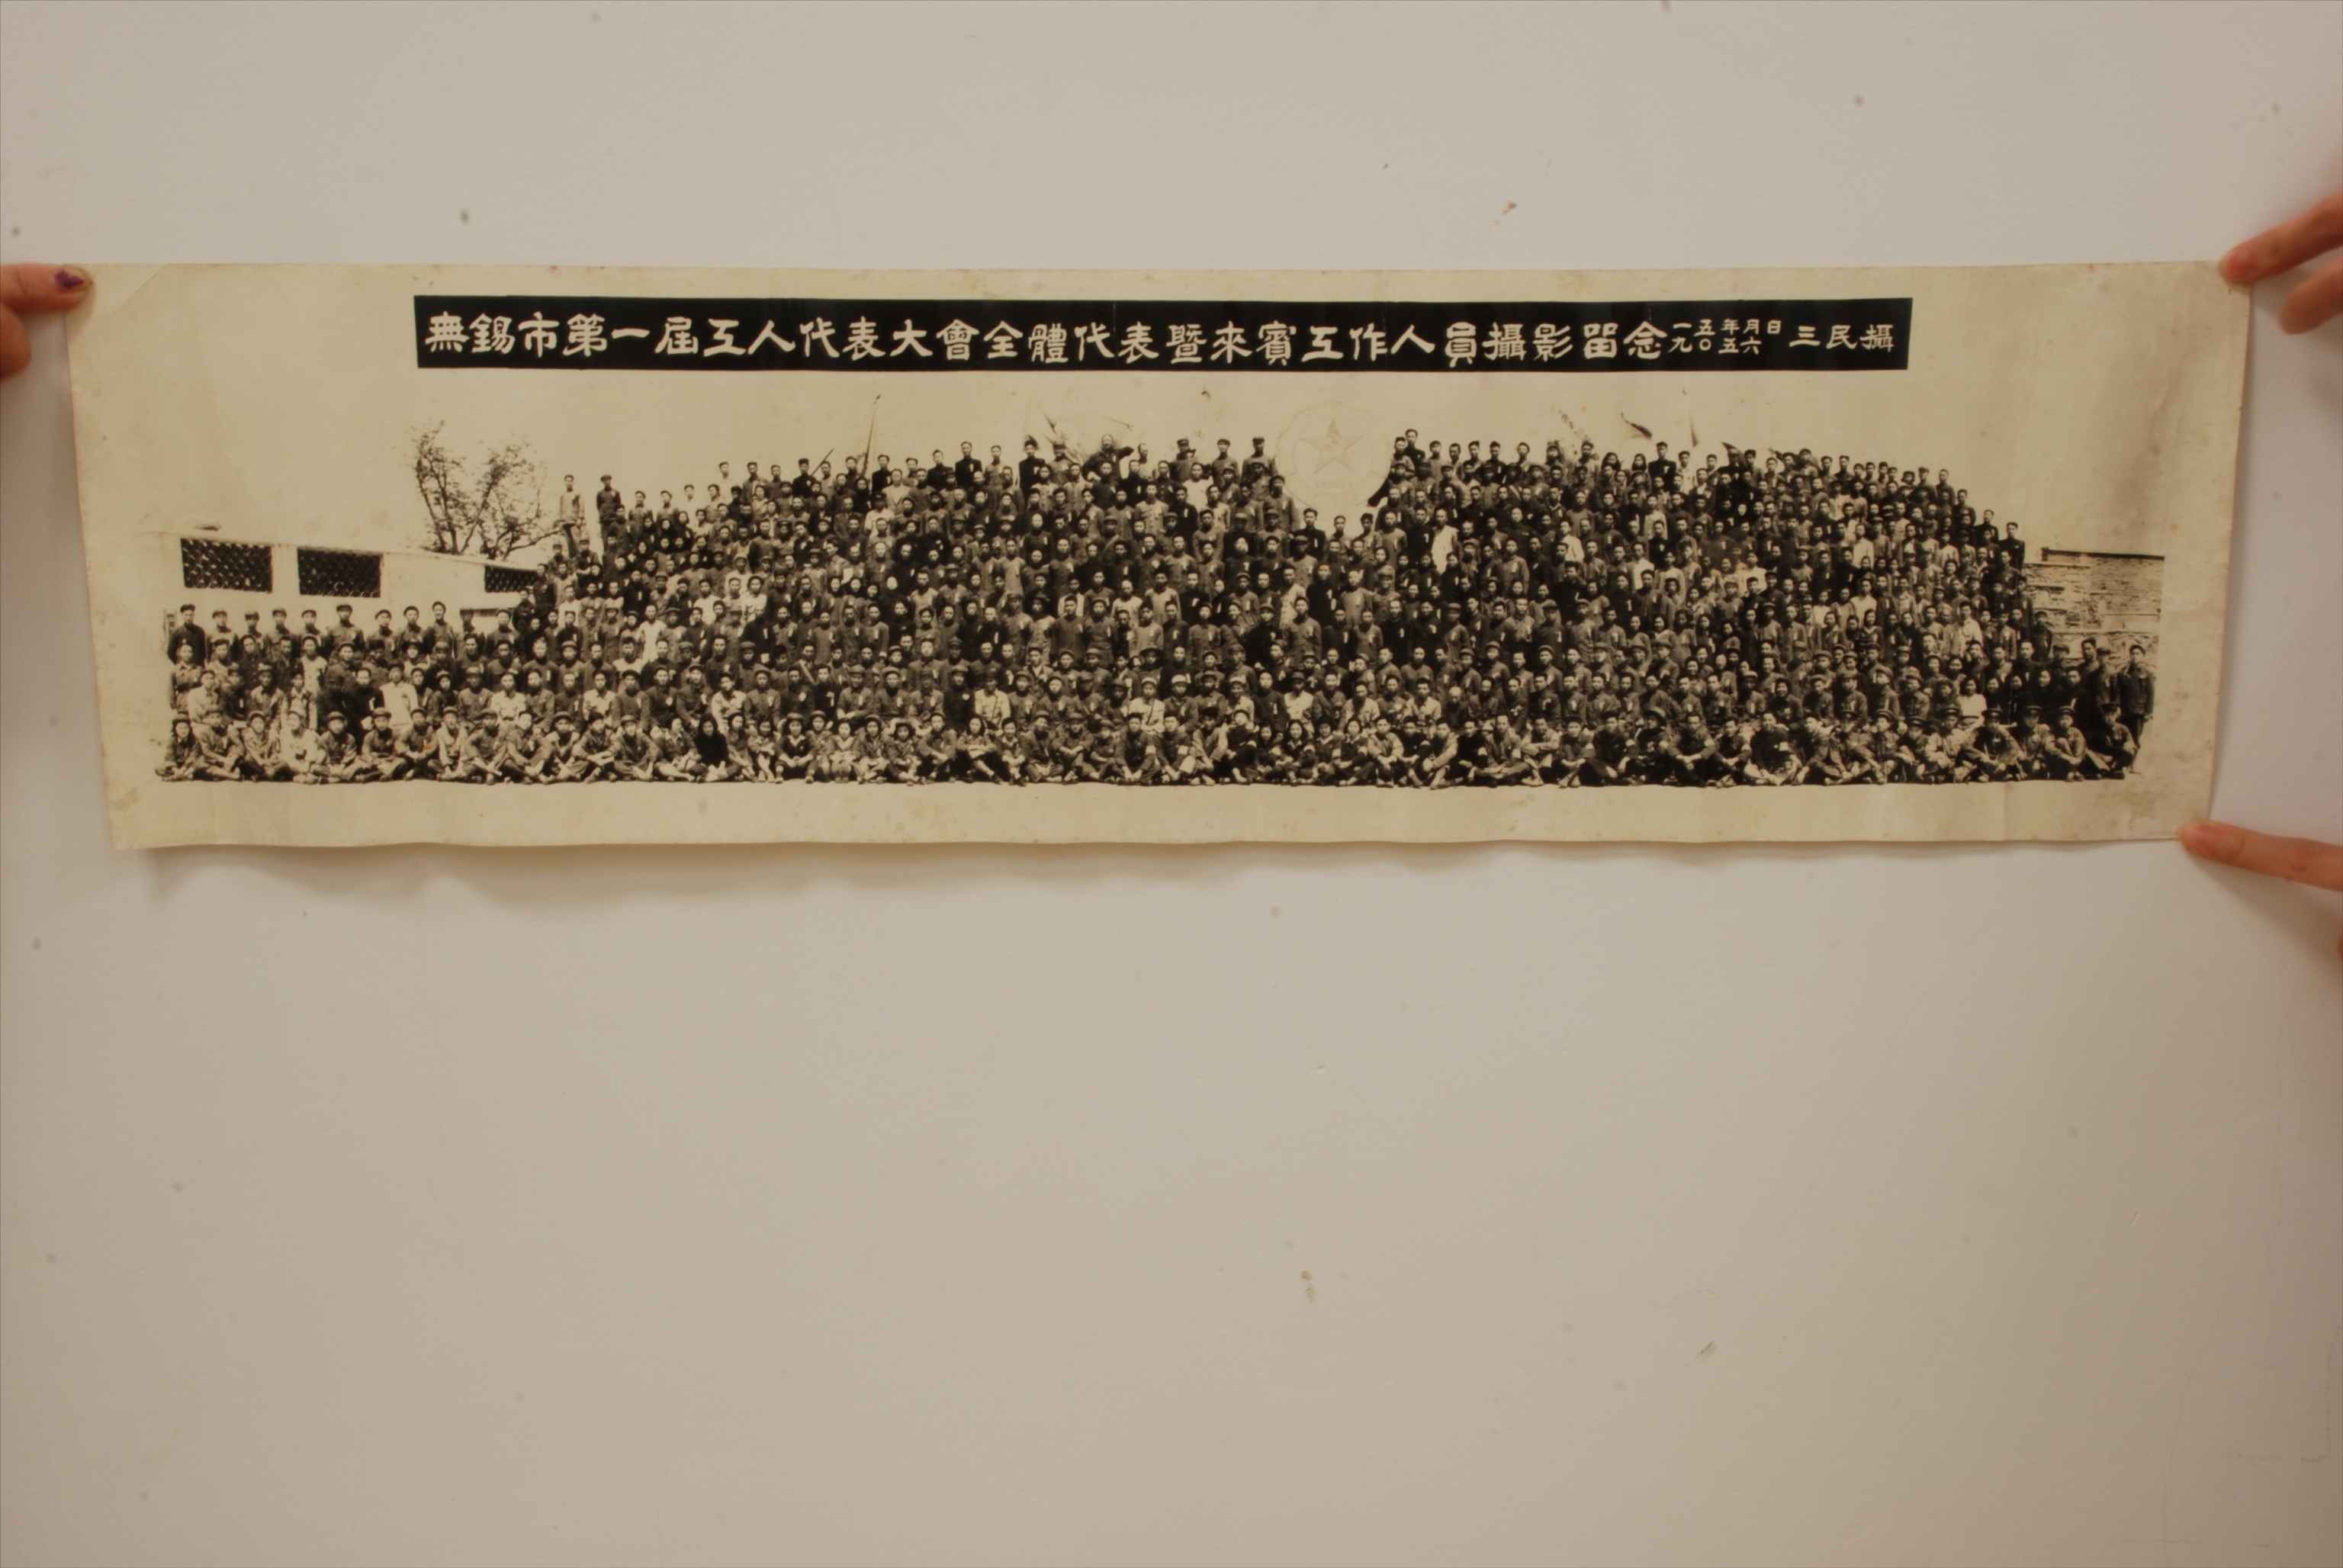 無錫市第一屆工人代表大會全體代表暨來賓工作人員攝影留念一九五〇年五月六日 三民攝